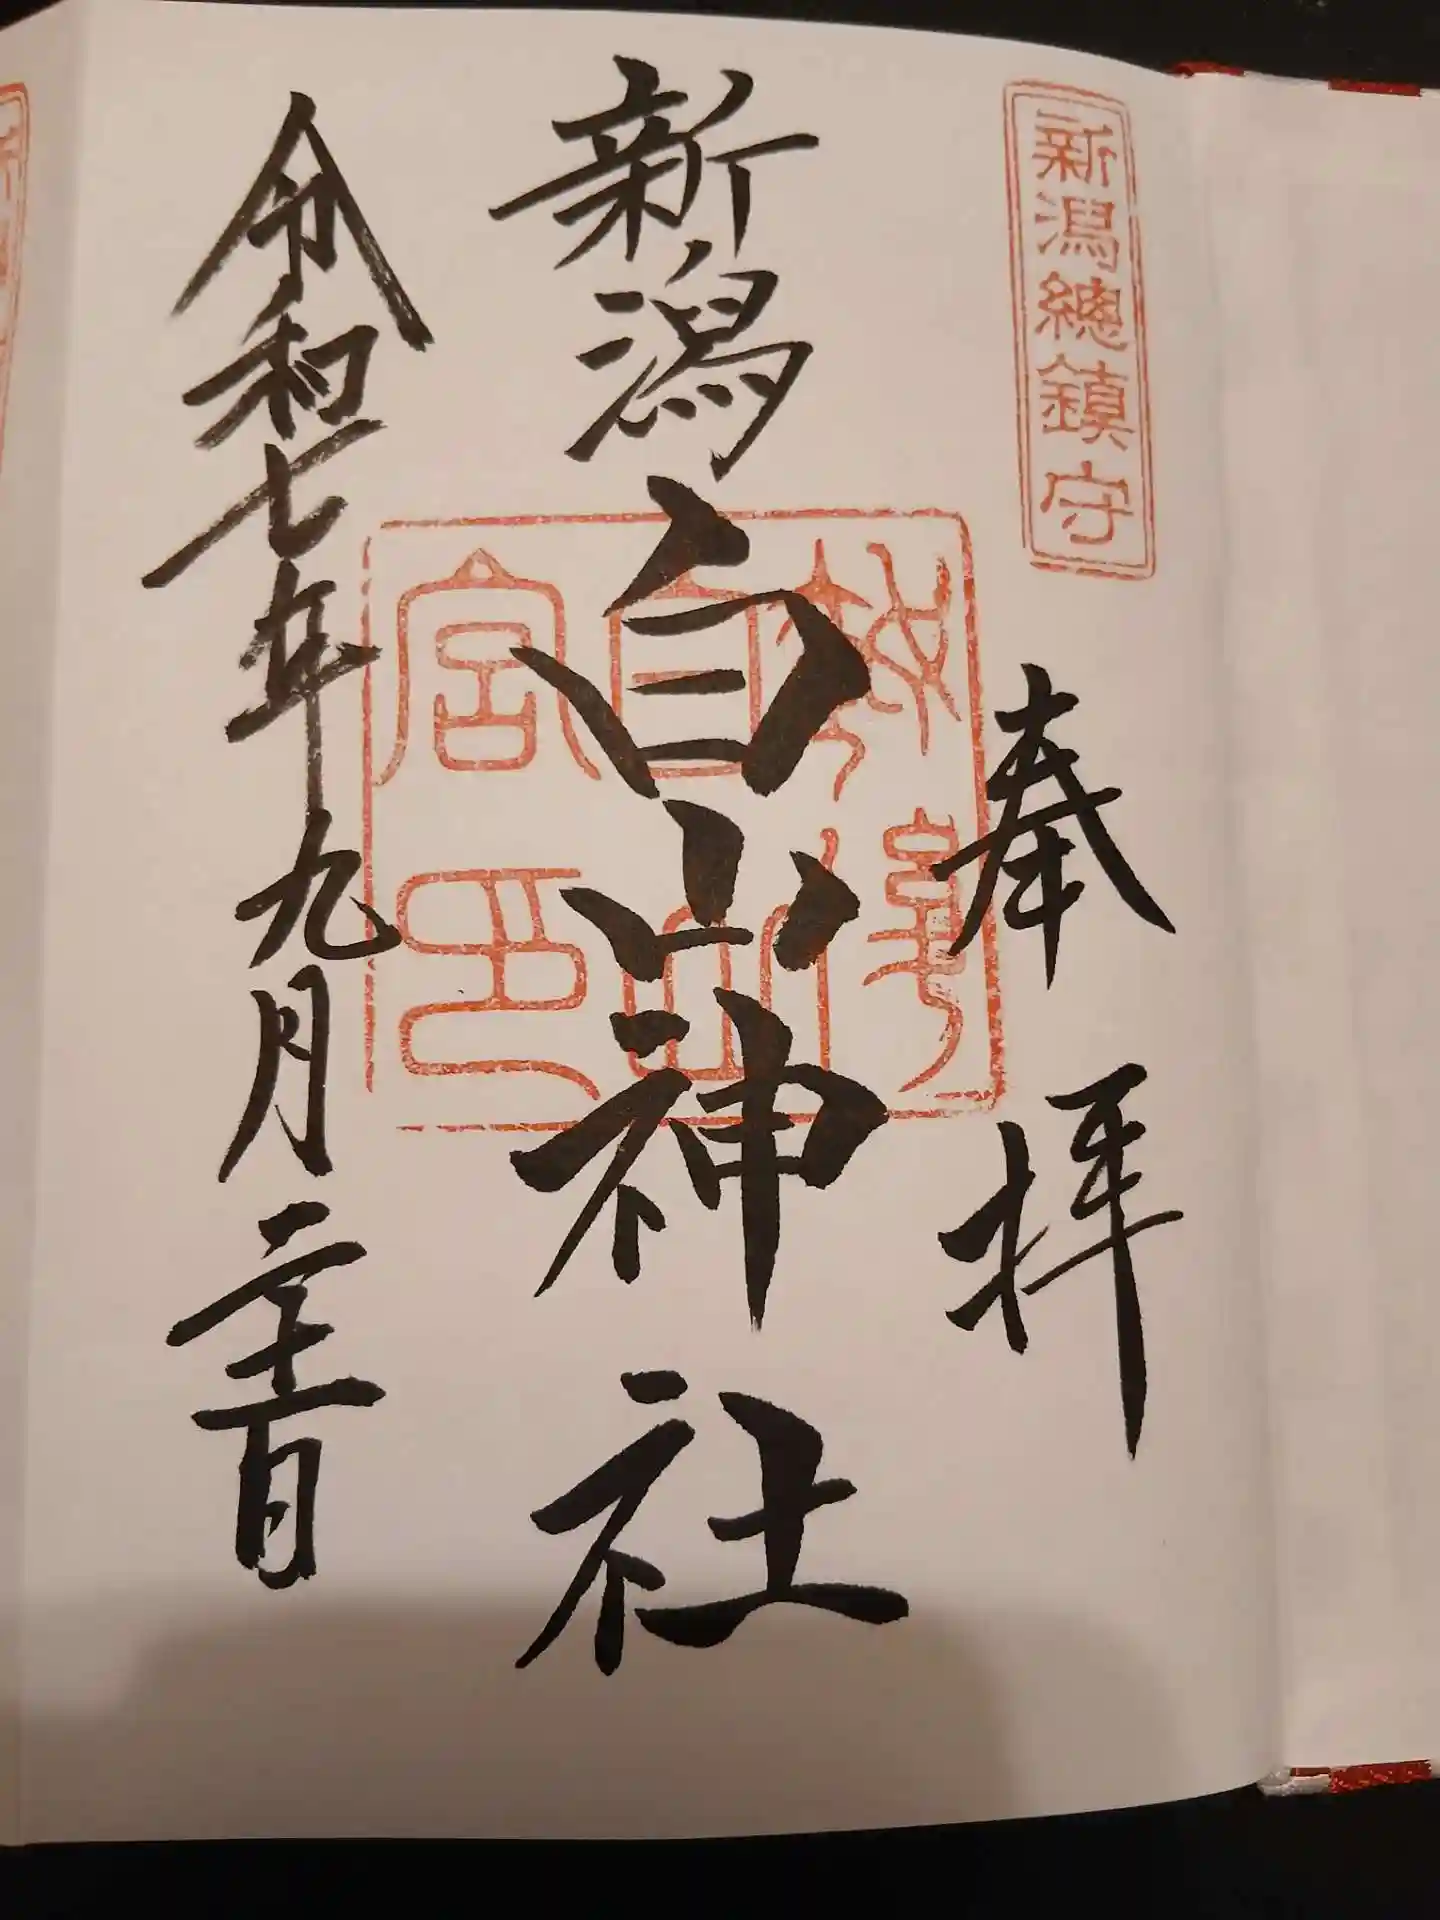 新潟總鎮守
奉拝
新潟白山神社
白山
宮印
令和七年九月二十一日